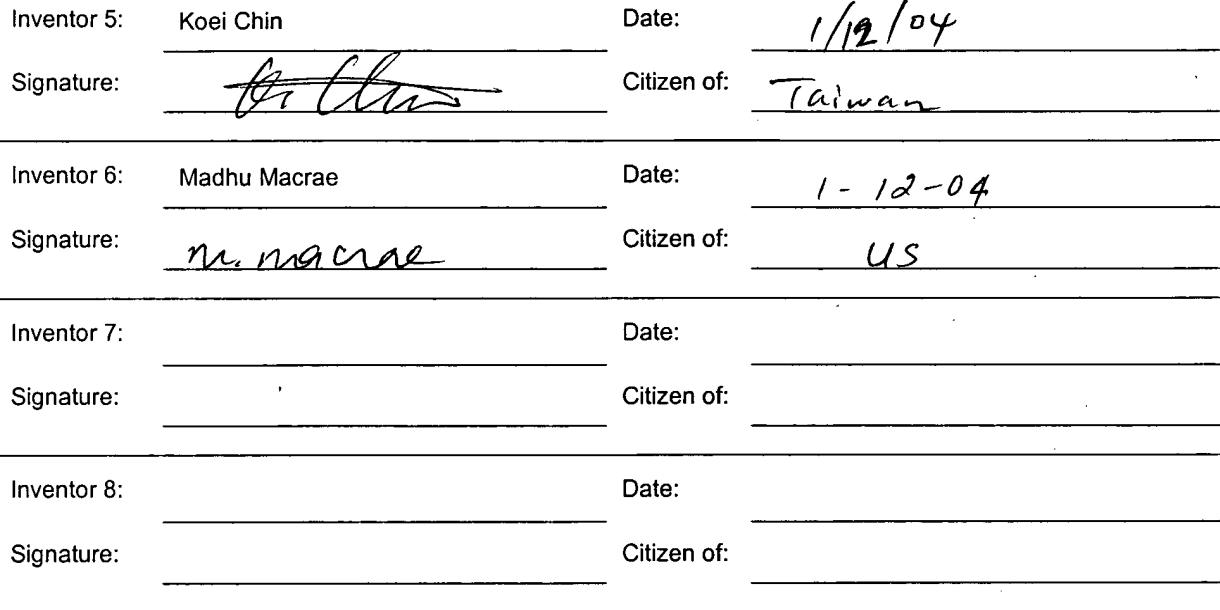 Inventor 5: Koei Chin Date: 1/12/04
Signature: Citizen of: Taiwan
Inventor 6: Madhu Macrae Date: 1-12-04
Signature: m. macrae Citizen of: US
Inventor 7: Date:
Signature: Citizen of:
Inventor 8: Date:
Signature: Citizen of: